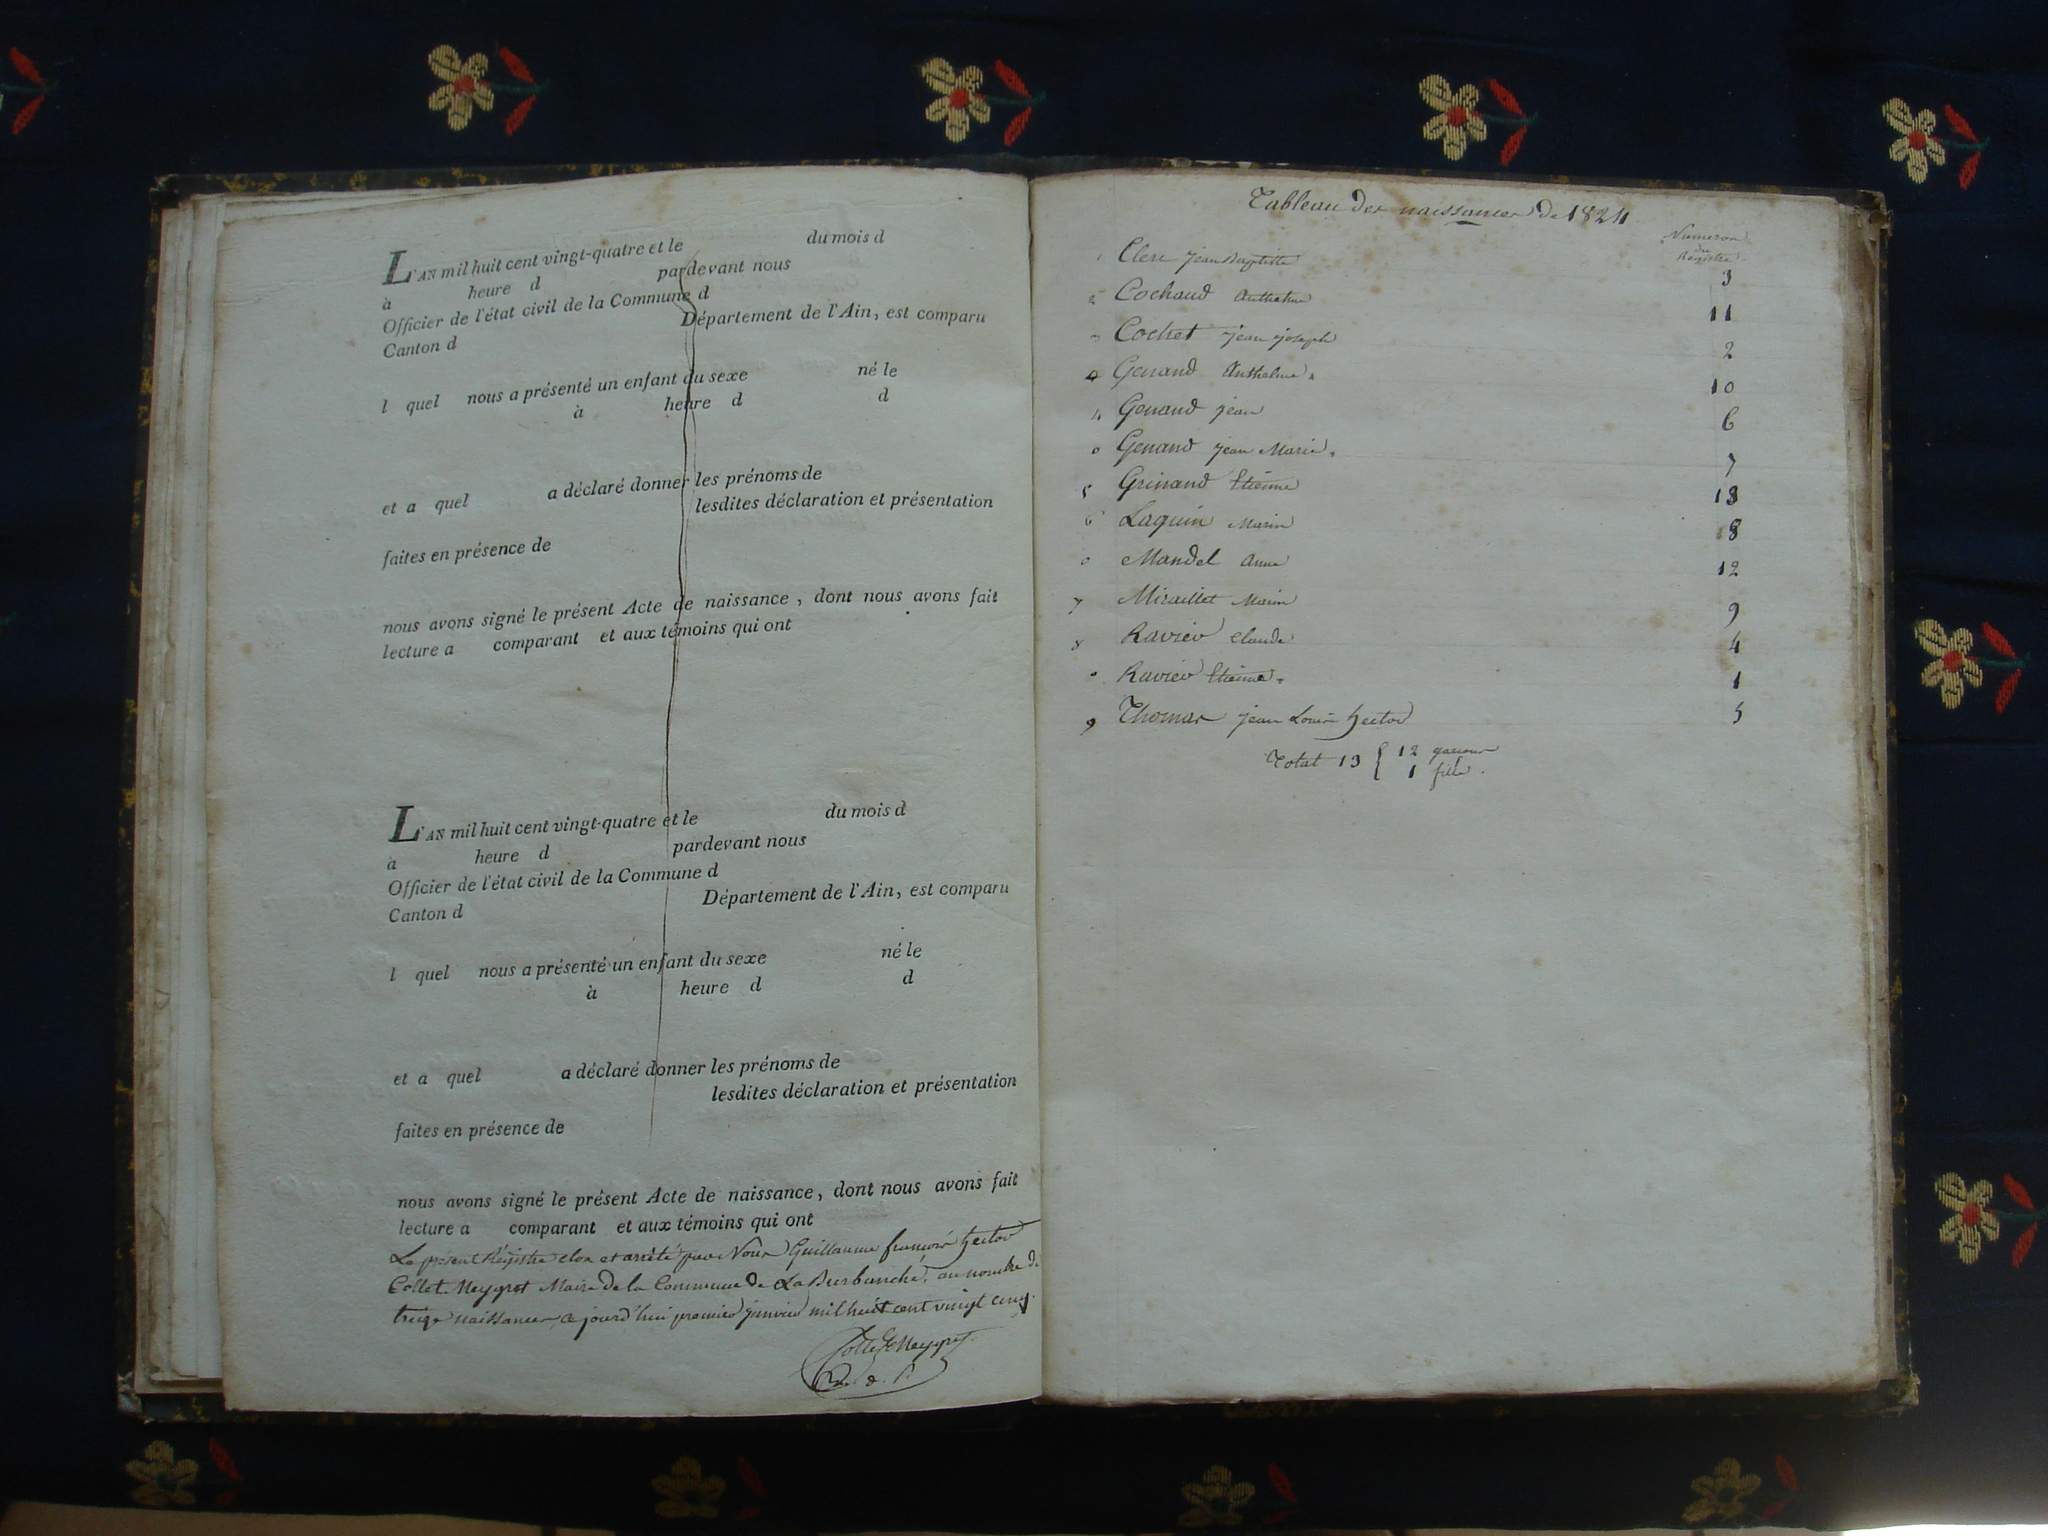 L'AN mil huit cent vingt-quatre et le du mois d
à heure d pardevant nous
Officier de l'état civil de la Commune d
Canton d Département de l'Ain, est comparu
l quel nous a présenté un enfant du sexe né le
à heure d d
et a quel a déclaré donner les prénoms de
lesdites déclaration et présentation
faites en présence de
nous avons signé le présent Acte de naissance, dont nous avons fait
lecture a comparant et aux témoins qui ont
L'AN mil huit cent vingt-quatre et le du mois d
à heure d pardevant nous
Officier de l'état civil de la Commune d
Canton d Département de l'Ain, est comparu
l quel nous a présenté un enfant du sexe né le
à heure d d
et a quel a déclaré donner les prénoms de
lesdites déclaration et présentation
faites en présence de
nous avons signé le présent Acte de naissance, dont nous avons fait
lecture a comparant et aux témoins qui ont
Le présent Régistre clos et arrêté par Nous Guillaume françois hector
Collet-Meygret Maire de la Commune de La Burbanche, au nombre de
treize naissances ce jourd'hui premier janvier mil huit cent vingt cinq.
Collet Meygret
Tableau des naissances de 1824
Numeros
du
Régistre
1 Clerc jean Baptiste 3
2 Cochaud anthelme 11
3 Cochet jean joseph 2
Genand Anthelme. 10
4 Genand jean 6
0 Genand jean Marie. 7
5 Grinand Etienne 13
6 Laquin Marin 8
0 Mandel anne 12
7 Miraillet Marin 9
8 Ravier claude 4
Ravier Etienne. 1
9 Thomas jean Louis hector 5
Total 13 { 12 garçons
1 fille.